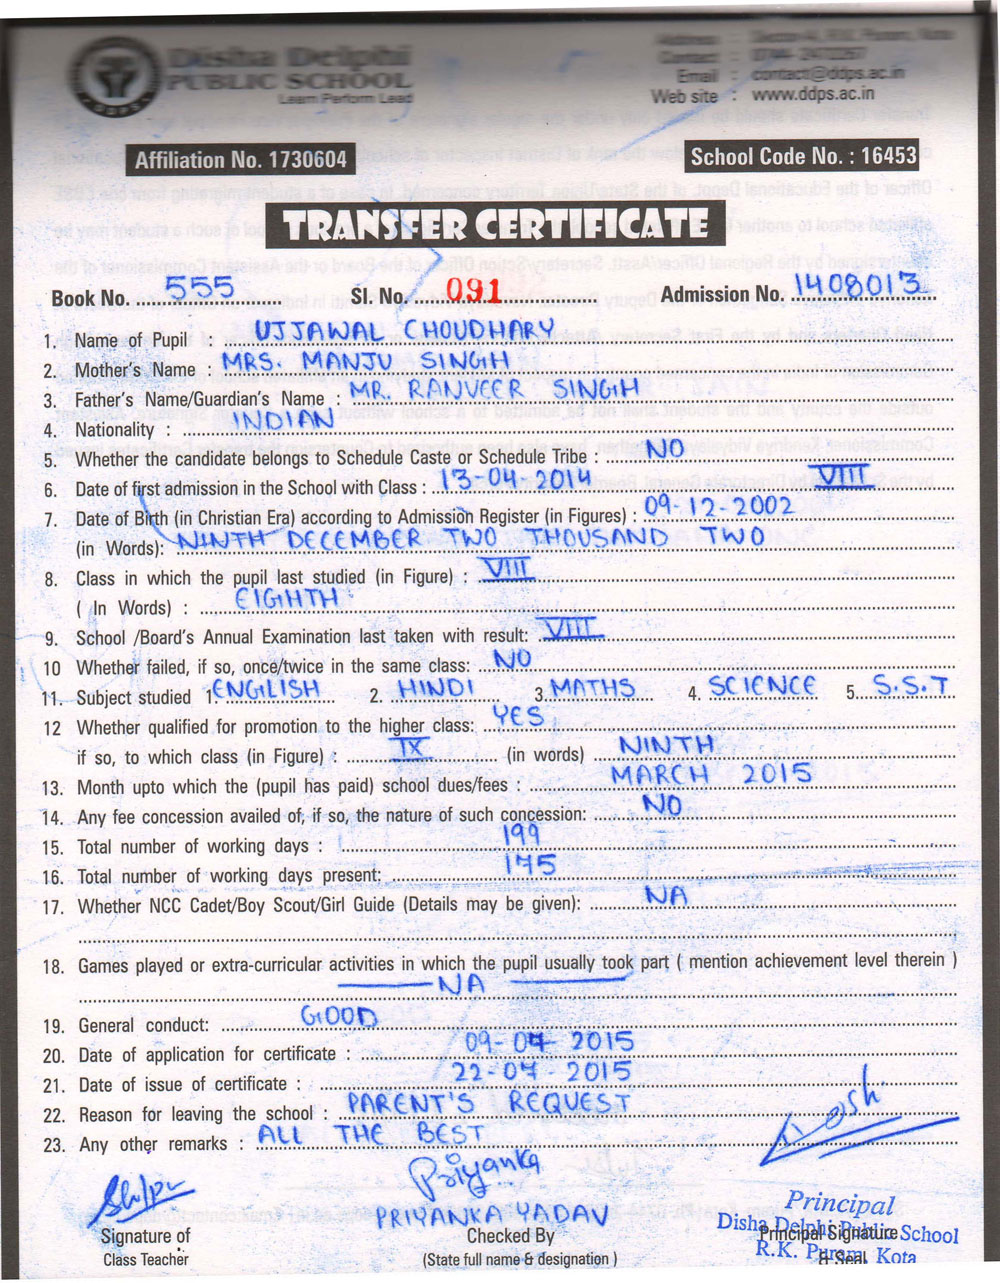 Disha Delphi
PUBLIC SCHOOL
Learn Perform Lead
Address :
Contact :
Email : contact@ddps.ac.in
Web site : www.ddps.ac.in
Affiliation No. 1730604
School Code No. : 16453
TRANSFER CERTIFICATE
Book No. 555 Sl. No. 091 Admission No. 1408013
1. Name of Pupil : UJJAWAL CHOUDHARY
2. Mother's Name : MRS. MANJU SINGH
3. Father's Name/Guardian's Name : MR. RANVEER SINGH
4. Nationality : INDIAN
5. Whether the candidate belongs to Schedule Caste or Schedule Tribe : NO
6. Date of first admission in the School with Class : 13-04-2014 VIII
7. Date of Birth (in Christian Era) according to Admission Register (in Figures) : 09-12-2002
(in Words): NINTH DECEMBER TWO THOUSAND TWO
8. Class in which the pupil last studied (in Figure) : VIII
( In Words) : EIGHTH
9. School /Board's Annual Examination last taken with result: VIII
10 Whether failed, if so, once/twice in the same class: NO
11. Subject studied 1. ENGLISH 2. HINDI 3. MATHS 4. SCIENCE 5. S.S.T
12 Whether qualified for promotion to the higher class: YES
if so, to which class (in Figure) : IX (in words) NINTH
13. Month upto which the (pupil has paid) school dues/fees : MARCH 2015
14. Any fee concession availed of, if so, the nature of such concession: NO
15. Total number of working days : 199
16. Total number of working days present: 175
17. Whether NCC Cadet/Boy Scout/Girl Guide (Details may be given): NA
18. Games played or extra-curricular activities in which the pupil usually took part ( mention achievement level therein )
NA
19. General conduct: GOOD
20. Date of application for certificate : 09-07-2015
21. Date of issue of certificate : 22-07-2015
22. Reason for leaving the school : PARENT'S REQUEST
23. Any other remarks : ALL THE BEST
Priyanka
PRIYANKA YADAV
Signature of
Class Teacher
Checked By
(State full name & designation )
Principal
Disha Delphi Public School
R.K. Puram, Kota
Principal Signature
& Seal